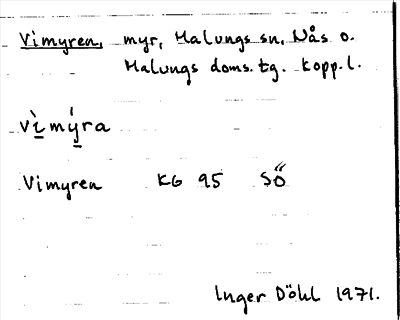 Vimyren, myr, Malungs sn, Nås o.
Malungs doms.tg. Kopp.l.
vìmýra
Vimyren KG 95 SÖ
Inger Döhl 1971.